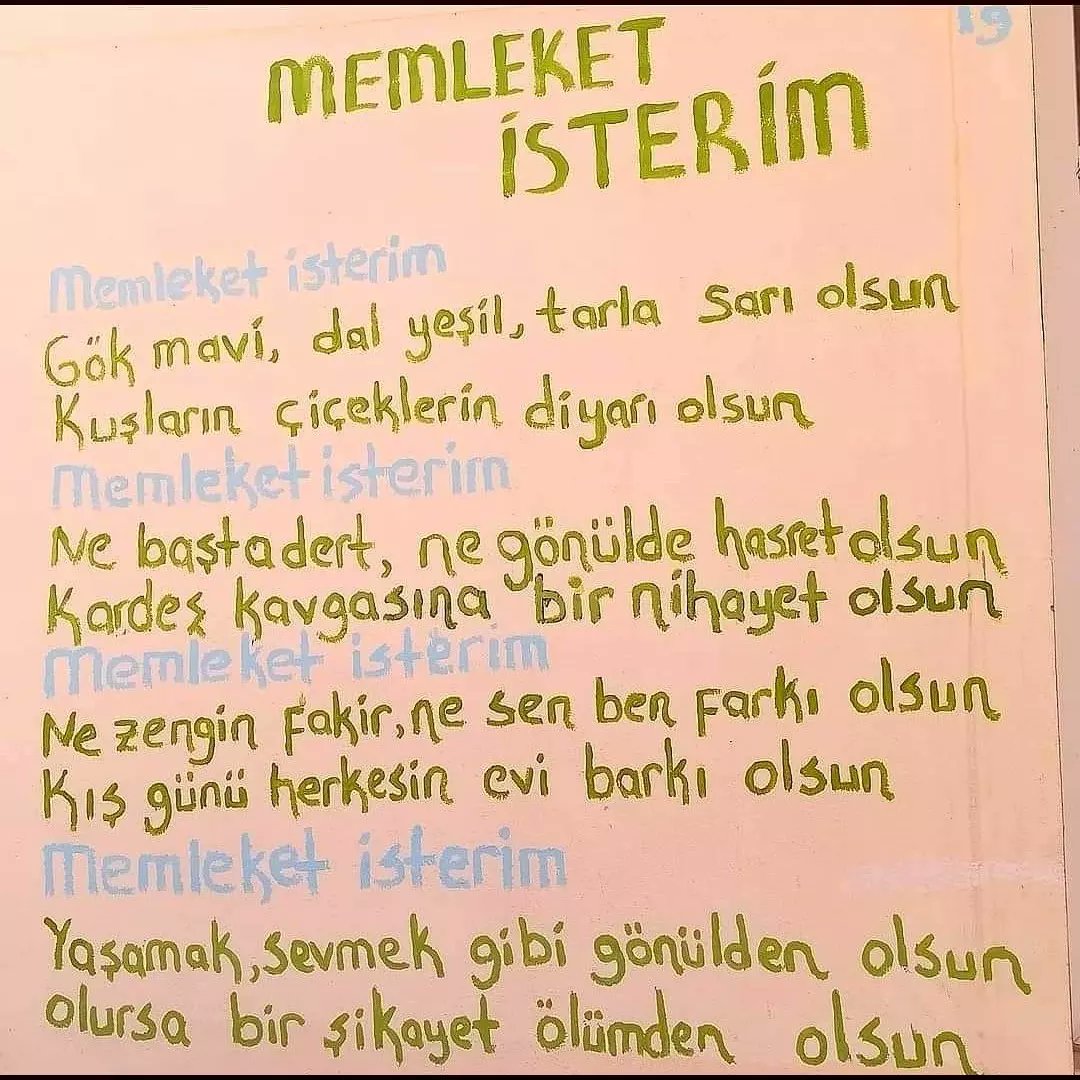 19
MEMLEKET
İSTERİM
Memleket isterim
Gök mavi, dal yeşil, tarla sarı olsun
Kuşların çiçeklerin diyarı olsun
Memleket isterim
Ne başta dert, ne gönülde hasret olsun
Kardeş kavgasına bir nihayet olsun
Memleket isterim
Ne zengin fakir, ne sen ben farkı olsun
Kış günü herkesin evi barkı olsun
Memleket isterim
Yaşamak, sevmek gibi gönülden olsun
olursa bir şikayet ölümden olsun